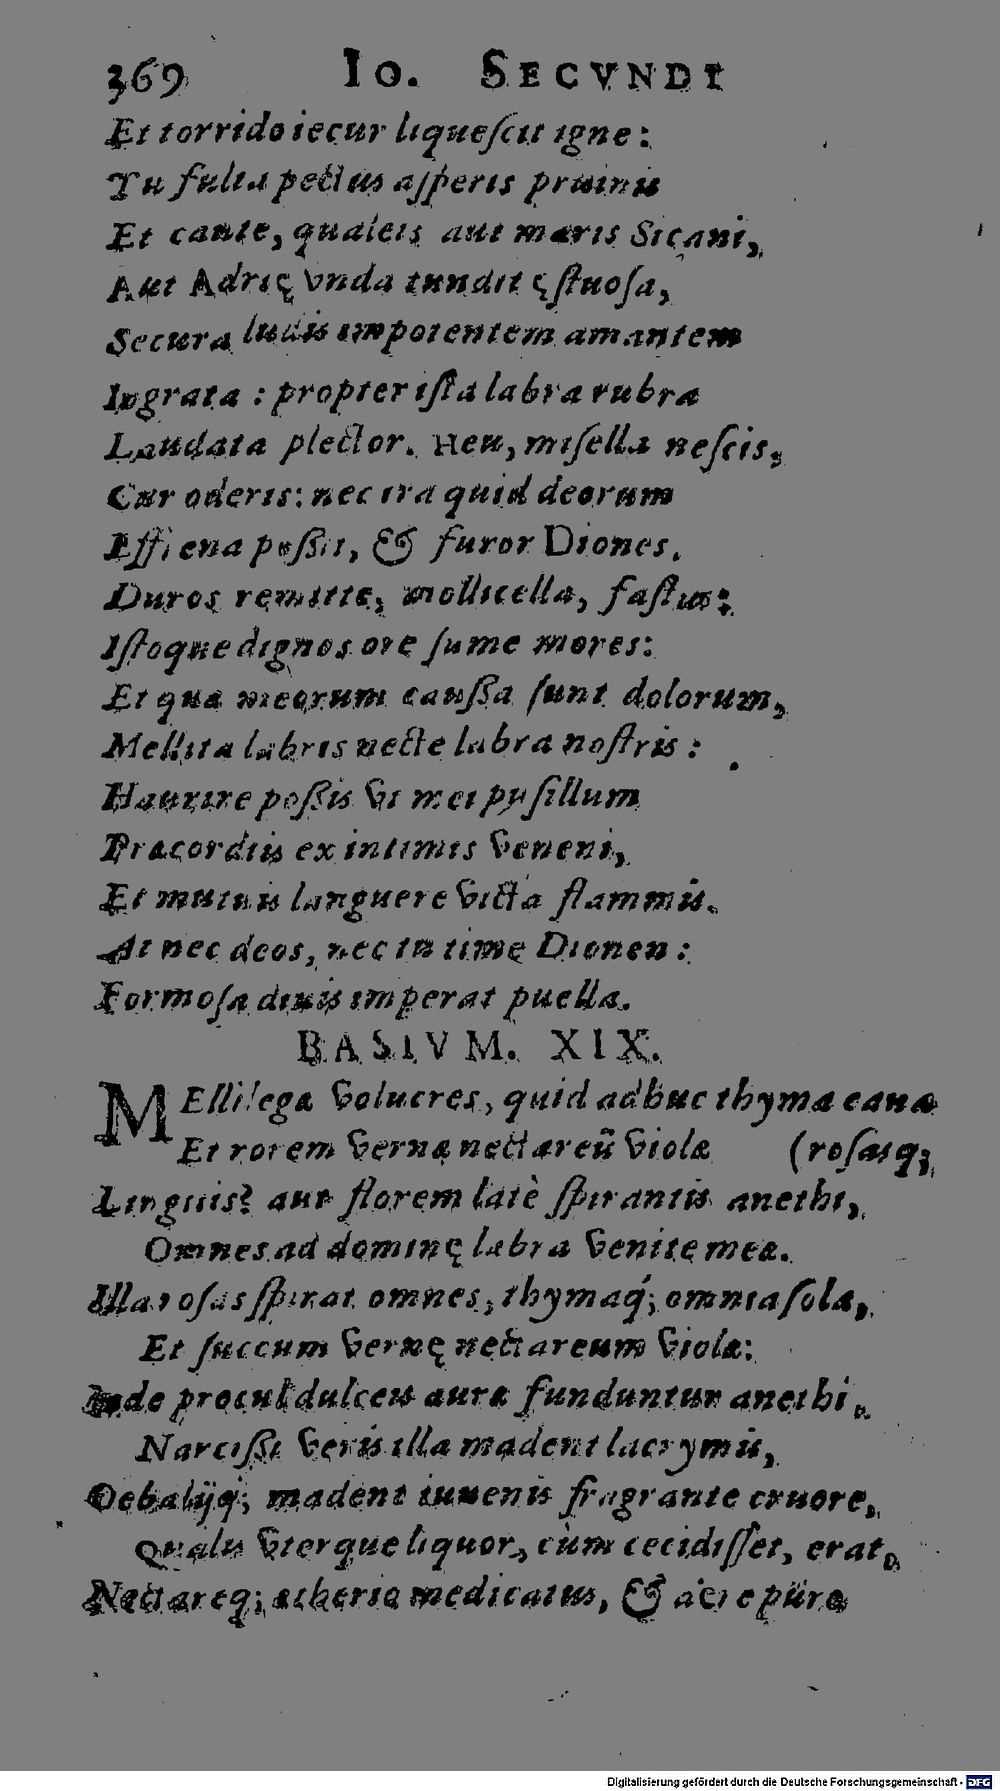 369 Io. SECVNDI
Et torrido iecur liquescit igne:
Tu fulta pectus asperis pruinis
Et caute, qualeis aut maris Sicani,
Aut Adrię vnda tundit ęstuosa,
Secura ludis impotentem amantem
Ingrata: propter ista labra rubra
Laudata plector. Heu, misella nescis,
Cur oderis: nec ira quid deorum
Effrena possit, & furor Diones.
Duros remitte, mollicella, fastus:
Istoque dignos ore sume mores:
Et quæ meorum caussa sunt dolorum,
Mellita labris necte labra nostris:
Haurire possis vt mei pusillum
Præcordiis ex intimis veneni,
Et mutuis languere victa flammis.
At nec deos, nec tu time Dionen:
Formosa diuis imperat puella.
BASIVM. XIX.
MEllilegæ volucres, quid adhuc thyma cana
Et rorem vernæ nectareũ violæ (rosasq;
Linguis? aut florem latè spirantis anethi,
Omnes ad dominę labra venite meæ.
Illa rosas spirat omnes, thymaq́; omnia sola,
Et succum vernę nectareum violæ:
Inde procul dulceis auræ funduntur anethi.
Narcissi veris illa madent lacrymis,
Oebalijq́; madent iuuenis fragrante cruore,
Qualis vterque liquor, cùm cecidisset, erat,
Nectareq; ætherio medicatus, & aëre puro
Digitalisierung gefördert durch die Deutsche Forschungsgemeinschaft - DFG